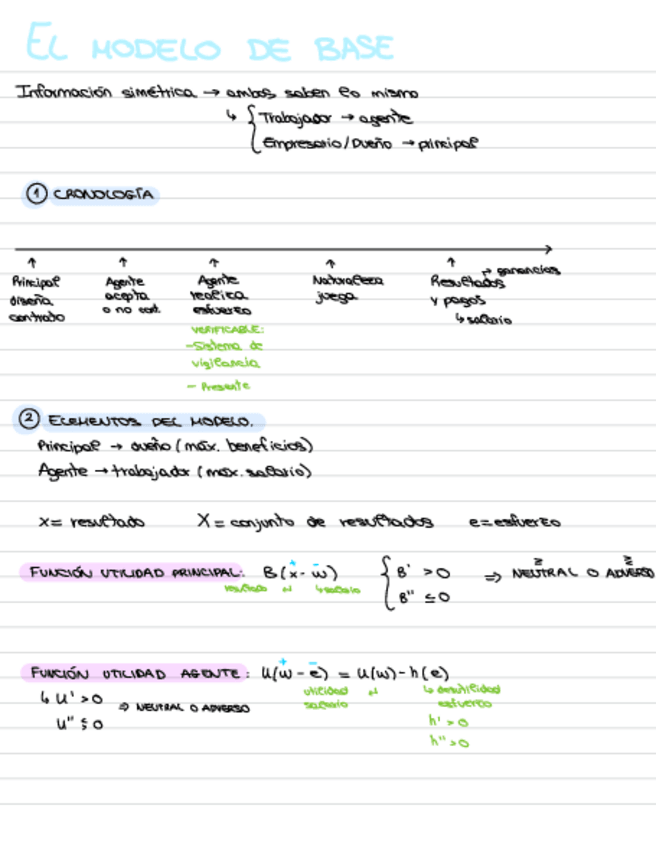 EL MODELO DE BASE
Información simétrica → ambos saben lo mismo
↳ { Trabajador → agente
Empresario/Dueño → principal
① CRONOLOGÍA
↑ ↑ ↑ ↑ ↑
Principal diseña contrato
Agente acepta o no cont.
Agente realiza esfuerzo
VERIFICABLE:
-Sistema de
vigilancia
- Presente
Naturaleza juega
Resultados → ganancias
y pagos
↳ salario
② ELEMENTOS DEL MODELO.
Principal → dueño (máx. beneficios)
Agente → trabajador (máx. salario)
x = resultado X = conjunto de resultados e = esfuerzo
FUNCIÓN UTILIDAD PRINCIPAL: B(x - w) { B' > 0 ⇒ NEUTRAL O ADVERSO
+ -
resultado ↵ ↳ salario B'' ≤ 0
FUNCIÓN UTILIDAD AGENTE: u(w - e) = u(w) - h(e)
+ -
↳ u' > 0 ⇒ NEUTRAL O ADVERSO
u'' ≤ 0
utilidad ↵ ↳ desutilidad
salario esfuerzo
h' > 0
h'' > 0